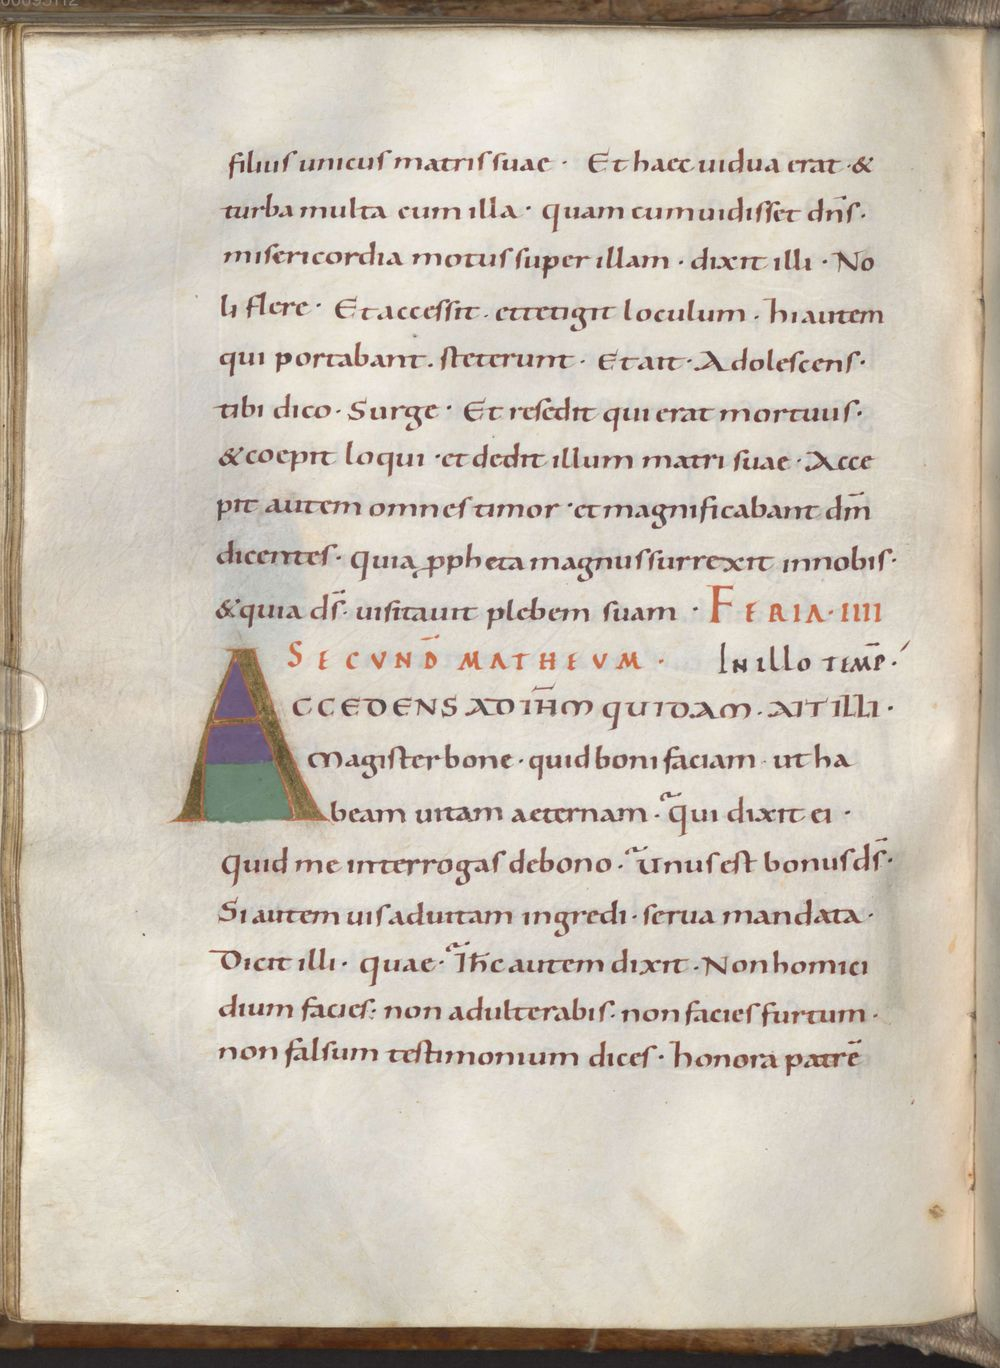 00095112
filius unicus matris suae · Et haec uidua erat · &
turba multa cum illa · quam cum uidisset dn̄s ·
misericordia motus super illam · dixit illi · No
li flere · Et accessit · et tetigit loculum · hi autem
qui portabant · steterunt · Et ait · Adolescens ·
tibi dico · Surge · Et resedit qui erat mortuus ·
& coepit loqui · et dedit illum matri suae · Acce
pit autem omnes timor · et magnificabant dm̄
dicentes · quia ꝓpheta magnus surrexit in nobis ·
& quia ds̄ · uisitauit plebem suam · FERIA · IIII
SECUND̄ MATHEUM · In illo temp̄ ·
ACCEDENS AD IH̄M QUIDAM · AIT ILLI ·
Magister bone · quid boni faciam · ut ha
beam uitam aeternam · qui dixit ei ·
Quid me interrogas de bono · Unus est bonus ds̄ ·
Si autem uis ad uitam ingredi · serua mandata ·
Dicit illi · quae · Ih̄c autem dixit · Non homici
dium facies : non adulterabis · non facies furtum ·
non falsum testimonium dices · honora patrē